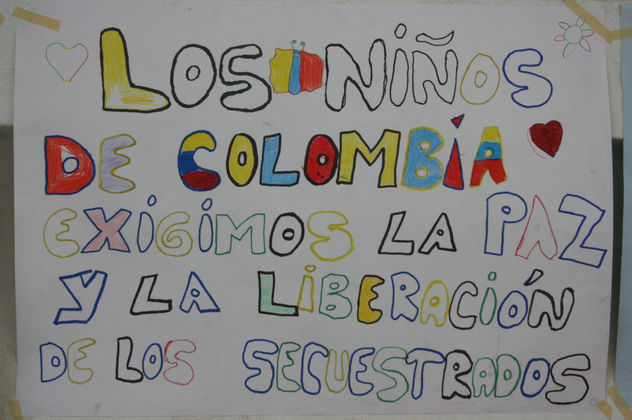 LOS NIÑOS
DE COLOMBIA
EXIGIMOS LA PAZ
Y LA LIBERACIÓN
DE LOS SECUESTRADOS